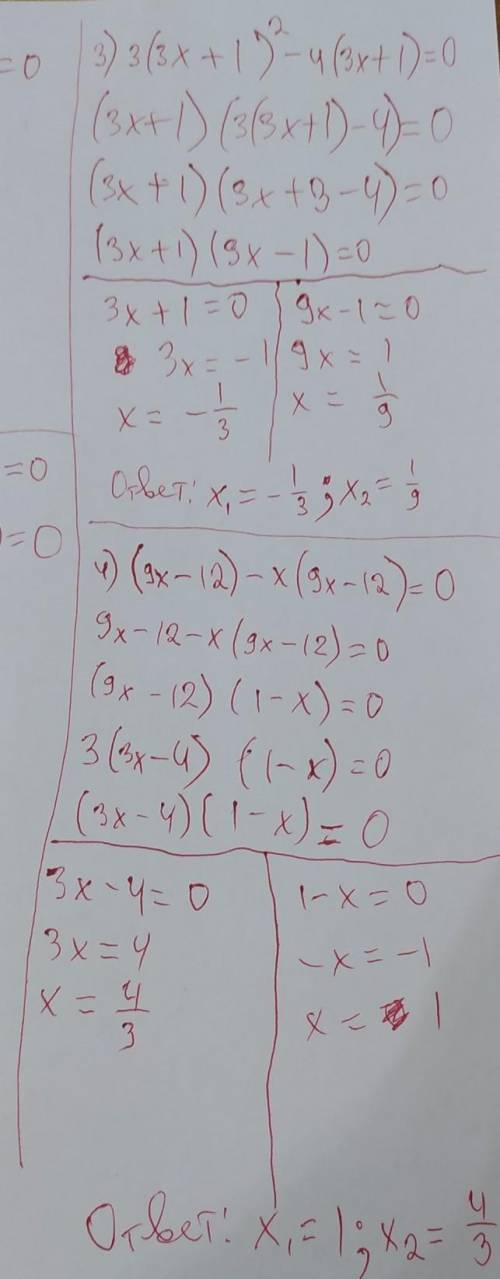 =0
=0
)=0
3) 3(3x+1)²-4(3x+1)=0
(3x+1)(3(3x+1)-4)=0
(3x+1)(9x+3-4)=0
(3x+1)(9x-1)=0
3x+1=0
3x=-1
x=-1/3
9x-1=0
9x=1
x=1/9
Ответ: x₁=-1/3; x₂=1/9
4) (9x-12)-x(9x-12)=0
9x-12-x(9x-12)=0
(9x-12)(1-x)=0
3(3x-4)(1-x)=0
(3x-4)(1-x)=0
3x-4=0
3x=4
x=4/3
1-x=0
-x=-1
x=1
Ответ: x₁=1; x₂=4/3